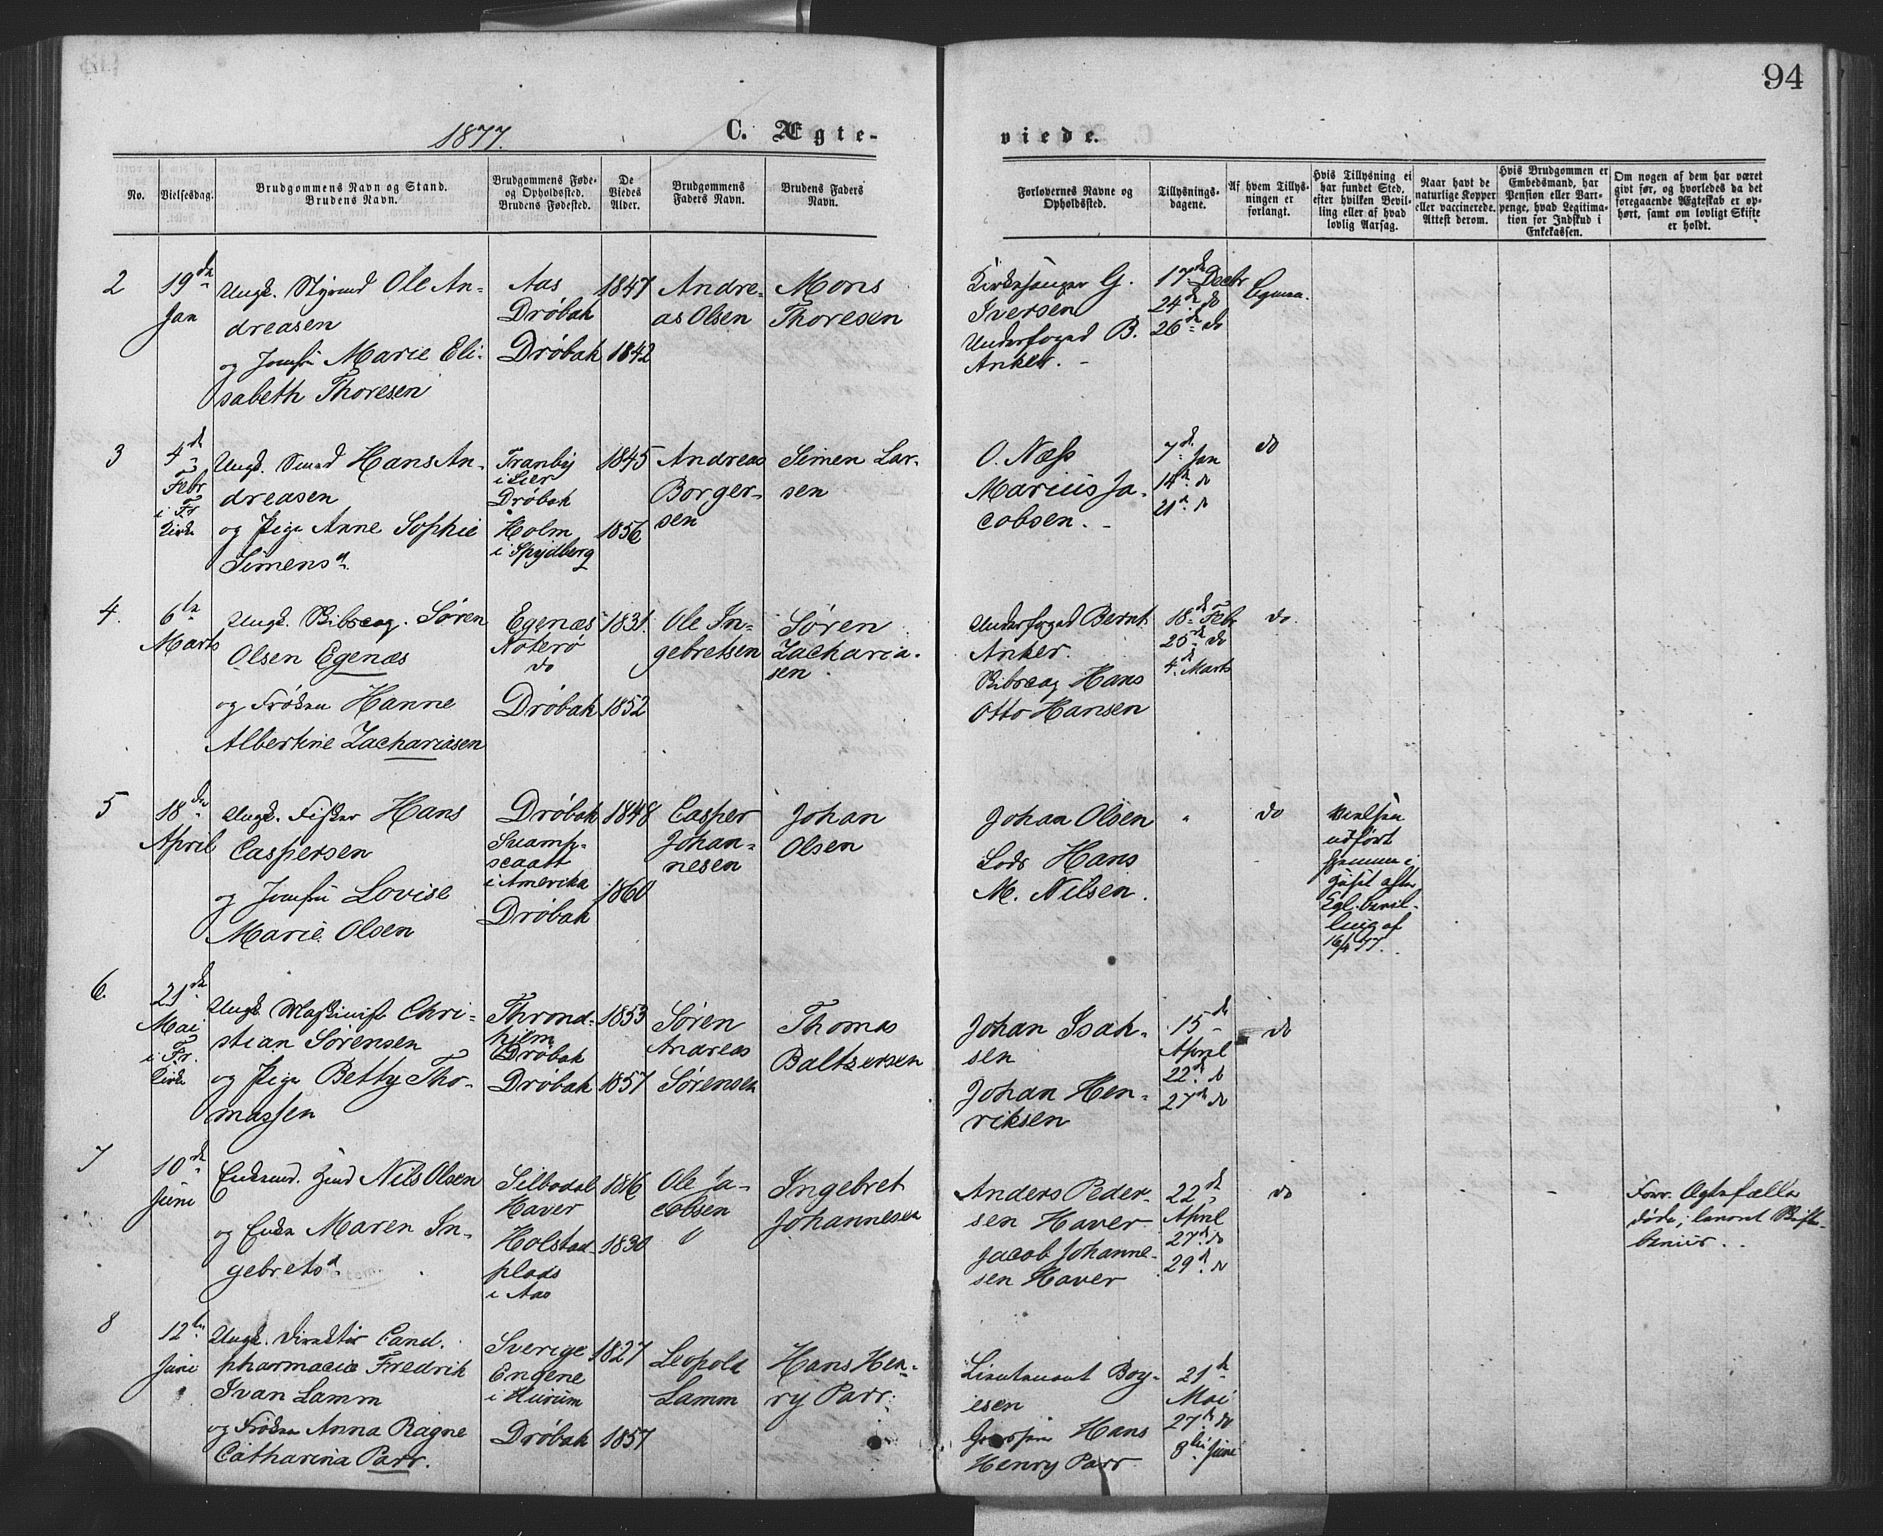 94
1877.
C. Ægte-
viede.
No.
Vielsesdag.
Brudgommens Navn og Stand.
Brudens Navn.
Brudgommens Føde-
og Opholdssted.
Brudens Fødested.
De
Viedes
Alder.
Brudgommens
Faders Navn.
Brudens Faders
Navn.
Forlovernes Navne og
Opholdssted.
Tillysnings-
dagene.
Af hvem Tillys-
ningen er
forlangt.
Hvis Tillysning ei
har fundet Sted,
efter hvilken Bevil-
ling eller af hvad
lovlig Aarsag.
Naar havt de
naturlige Kopper
eller vaccinerede.
Attest derom.
Hvis Brudgommen er
Embedsmand, har
Pension eller Vart-
penge, hvad Legitima-
tion for Indskud i
Enkekassen.
Om nogen af dem har været
givt før, og hvorledes da det
foregaaende Ægteskab er op-
hørt, samt om lovligt Skifte
er holdt.
2
19de
Jan
Ungk. Styrmd Ole An-
dreasen
og Jomfru Marie Eli-
sabeth Thoresen
Aas
Drøbak
Drøbak
1847
1842
Andre-
as Olsen
Mons
Thoresen
Kirkesanger G.
Iversen
Underfoged B.
Anker.
17de Decbr
24de do
26de do
3
4de
Febr
i Fr
Kirke
Ungk. Smed Hans An-
dreasen
og Pige Anne Sophie
Simensd.
Tranby
i Lier
Drøbak
Holm
i Spydberg
1845
1856
Andreas
Borger-
sen
Simen Lar-
sen
O. Næss
Marius Ja-
cobsen.
7de Jan
14de do
21de do
do
4.
6te
Marts
Ungk. Søren
Olsen Egenæs
og Frøken Hanne
Albertine Zachariasen
Egenæs
Noterø
do
Drøbak
1831.
1852
Ole In-
gebretsen
Søren
Zacharia-
sen
Underfoged Bernt
Anker.
Hans
Otto Hansen
18de Febr
25de do
4de Marts
do.
5
18de
April
Ungk. Fisker Hans
Caspersen
og Jomfru Lovise
Marie Olsen
Drøbak
Svamp-
scaatt
i Amerika
Drøbak
1848
1860
Casper
Johan-
nesen
Johan
Olsen
Johan Olsen
Lods Hans
M. Nilsen.
"
do
Vielsen
udført
hjemme i
Huset efter
Kgl. Bevil-
ling af
16/4 77.
6.
21de
Mai
i Fr.
Kirke
Ungk. Maskinist Chri-
stian Sørensen
og Pige Betty Tho-
massen
Throndhjem
Drøbak
Drøbak
1853
1857
Søren
Andreas
Sørensen
Thomas
Baltzersen
Johan Isak-
sen
Johan Hen-
riksen
15de
April
22de do
27de do
do
7
10de
Juni
Enkemd. Nils Olsen
og Enke Maren In-
gebretsd.
Silbodal
Haver
Holstad-
plads
i Aas
1816
1830
Ole Ja-
cobsen
"
Ingebret
Johannesen
Anders Peder-
sen Haver
Jacob Johanne-
sen Haver
22de
April
27de do
29de do
do
Forr. Ægtefælle
døde; lovet Skifte-
beviis.
8
12te
Juni
Ungk. Direktør Cand.
pharmacie Fredrik
Ivan Lamm
og Frøken Anna Ragne
Catharina Parr.
Sverige
Engene
i Hurum
Drøbak
1827
1857
Leopold
Lamm
Hans Hen-
ry Parr.
Lieutenant Boy-
esen
Grosserer Hans
Henry Parr
21de
Mai
27de do
8de Juni